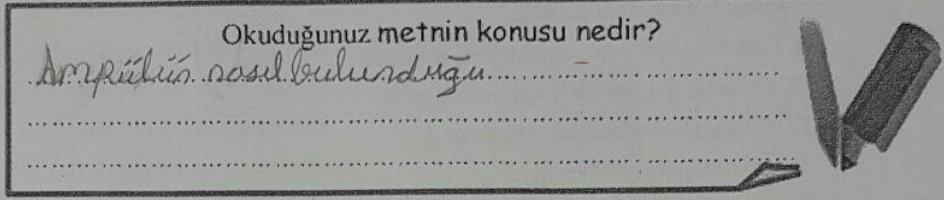 Okuduğunuz metnin konusu nedir?
Ampülün nasıl bulunduğu